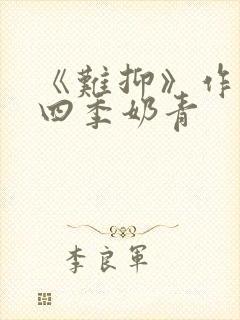 《難抑》作
四季奶青
李良軍